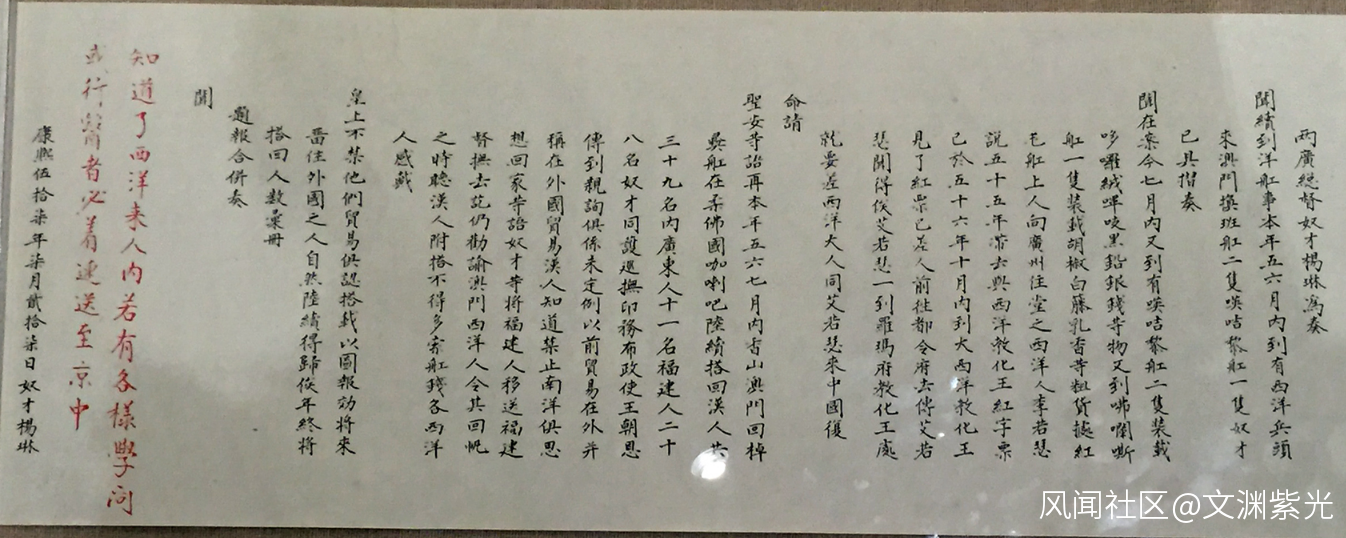 兩廣總督奴才楊琳為奏
聞續到洋舡事本年五六月內到有西洋兵頭
來澳門換班舡二隻𠸄咭黎舡一隻奴才
已具摺奏
聞在案今七月內又到有𠸄咭黎舡二隻裝載
哆囉絨嗶吱黑鉛銀錢等物又到咈囒嘶
舡一隻裝載胡椒白藤乳香等粗貨據紅
毛舡上人向廣州住堂之西洋人李若瑟
說五十五年帶去與西洋教化王紅字票
已於五十六年十月內到大西洋教化王
見了紅票已差人前往都令府去傳艾若
瑟聞得俟艾若瑟一到羅瑪府教化王處
就要差西洋大人同艾若瑟來中國復
命請
聖安等語再本年五六七月內香山澳門回棹
彝舡在柔佛國咖喇吧陸續搭回漢人共
三十九名內廣東人十一名福建人二十
八名奴才同護巡撫印務布政使王朝恩
傳到親詢俱係未定例以前貿易在外并
稱在外國貿易漢人知道禁止南洋俱思
想回家等語奴才等將福建人移送福建
督撫去訖仍勸諭澳門西洋人令其回帆
之時聽漢人附搭不得多索舡錢各西洋
人感戴
皇上不禁他們貿易俱認搭載以圖報効將來
留住外國之人自然陸續得歸俟年終將
搭回人數彙冊
題報合併奏
聞
知道了西洋來人內若有各樣學問
或行醫者必着速送至京中
康熙伍拾柒年柒月貳拾柒日奴才楊琳
风闻社区@文渊紫光